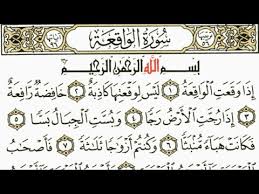 سُورَةُ الوَاقِعَةِ
بِسْمِ اللَّهِ الرَّحْمَٰنِ الرَّحِيمِ
إِذَا وَقَعَتِ الْوَاقِعَةُ ۝١ لَيْسَ لِوَقْعَتِهَا كَاذِبَةٌ ۝٢ خَافِضَةٌ رَافِعَةٌ
۝٣ إِذَا رُجَّتِ الْأَرْضُ رَجًّا ۝٤ وَبُسَّتِ الْجِبَالُ بَسًّا ۝٥
فَكَانَتْ هَبَاءً مُنْبَثًّا ۝٦ وَكُنْتُمْ أَزْوَاجًا ثَلَاثَةً ۝٧ فَأَصْحَابُ